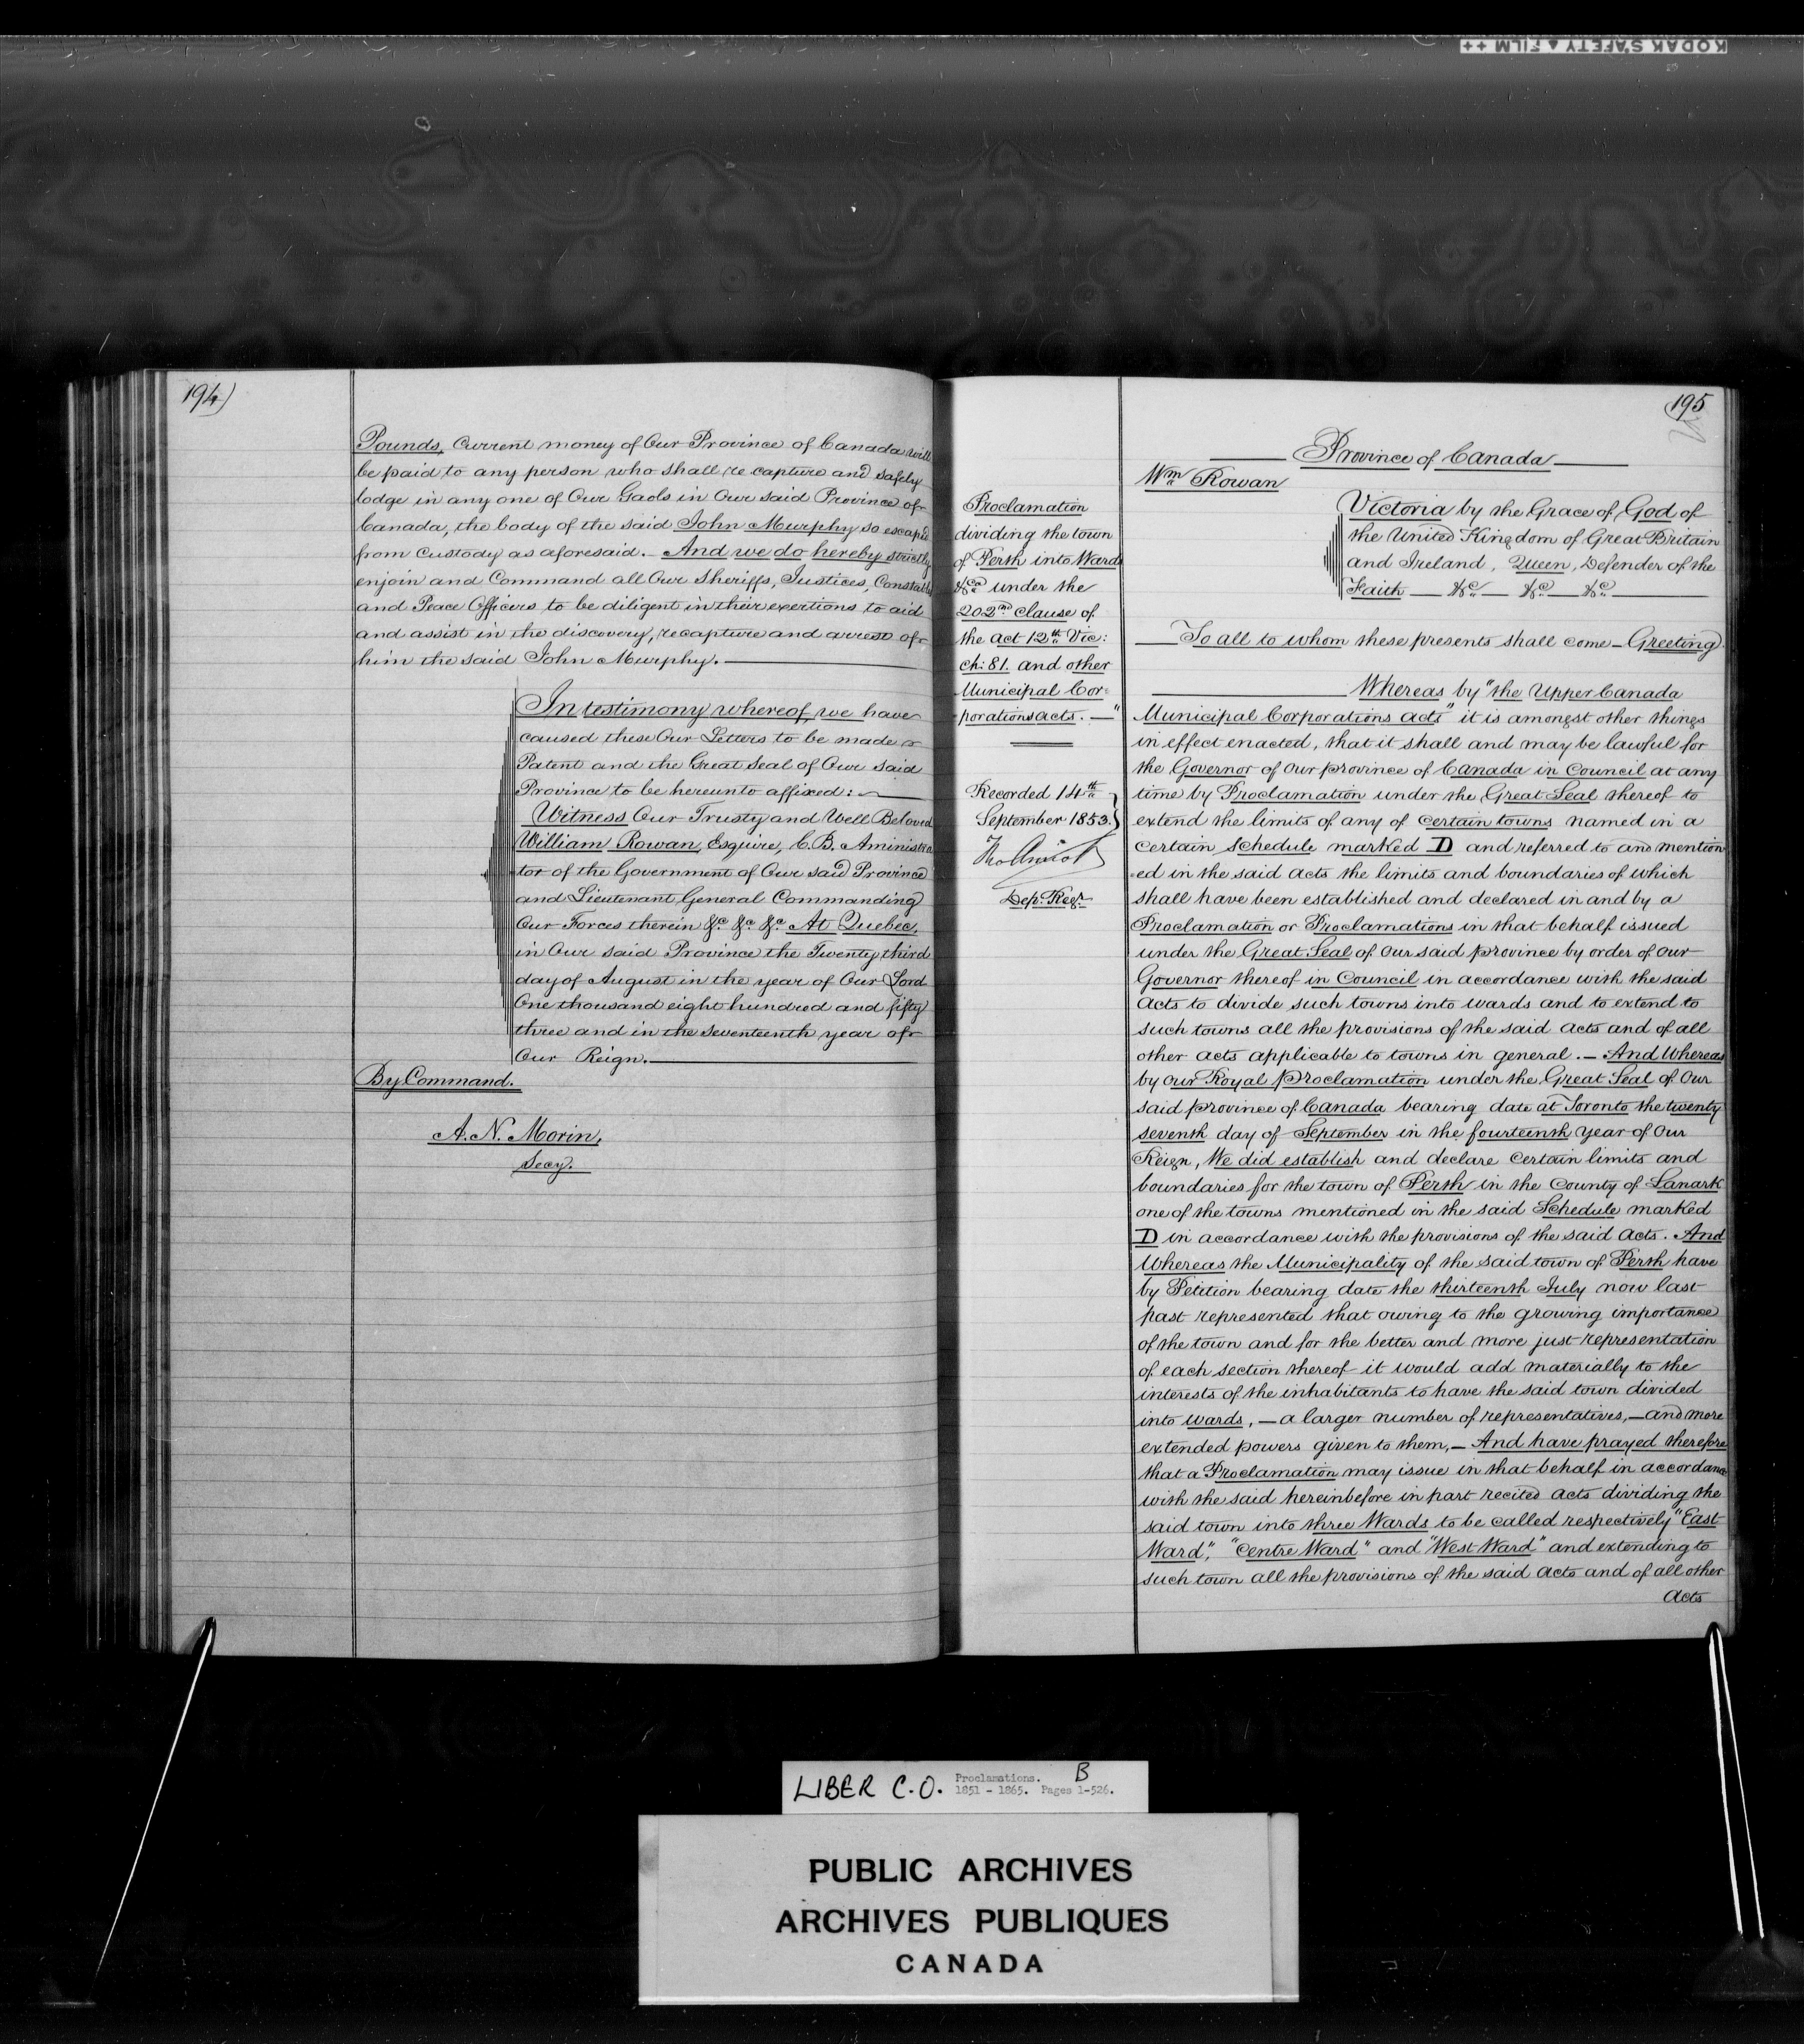 KODAK SAFETY ▲ FILM ++
194)
Pounds, Current money of Our Province of Canada will
be paid to any person who shall re capture and safely
lodge in any one of Our Gaols in Our said Province of
Canada, the body of the said John Murphy so escaped
from Custody as aforesaid. — And we do hereby strictly
enjoin and Command all Our Sheriffs, Justices, Constables
and Peace Officers to be diligent in their exertions to aid
and assist in the discovery, recapture and arrest of
him the said John Murphy. —
In testimony whereof, we have
caused these Our Letters to be made
Patent and the Great Seal of Our said
Province to be hereunto affixed: —
Witness Our Trusty and Well Beloved
William Rowan, Esquire, C.B. Aministra
tor of the Government of Our said Province
and Lieutenant General Commanding
Our Forces therein &c &c &c At Quebec,
in Our said Province the Twenty third
day of August in the year of Our Lord
One thousand eight hundred and fifty
three and in the Seventeenth year of
Our Reign. —
By Command.
A. N. Morin,
Secy.
195
Proclamation
dividing the town
of Perth into Wards
&ca under the
202nd Clause of
the act 12th Vic:
ch: 81. and other
Municipal Cor-
porations acts. — "
Recorded 14th
September 1853.}
Dep. Regr
Province of Canada
Wm Rowan
Victoria by the Grace of God of
the United Kingdom of Great Britain
and Ireland, Queen, Defender of the
Faith — &c — &c — &c —
— To all to whom these presents shall come — Greeting
— Whereas by "the Upper Canada
Municipal Corporations acts" it is amongst other things
in effect enacted, that it shall and may be lawful for
the Governor of our province of Canada in Council at any
time by Proclamation under the Great Seal thereof to
extend the limits of any of certain towns named in a
certain Schedule marked D and referred to and mention
ed in the said acts the limits and boundaries of which
shall have been established and declared in and by a
Proclamation or Proclamations in that behalf issued
under the Great Seal of our said province by order of our
Governor thereof in Council in accordance with the said
acts to divide such towns into wards and to extend to
such towns all the provisions of the said acts and of all
other acts applicable to towns in general. — And Whereas
by our Royal Proclamation under the Great Seal of our
said province of Canada bearing date at Toronto the twenty
seventh day of September in the fourteenth year of our
Reign, We did establish and declare certain limits and
boundaries for the town of Perth in the County of Lanark
one of the towns mentioned in the said Schedule marked
D in accordance with the provisions of the said acts. And
Whereas the Municipality of the said town of Perth have
by Petition bearing date the thirteenth July now last
past represented that owing to the growing importance
of the town and for the better and more just representation
of each section thereof it would add materially to the
interests of the inhabitants to have the said town divided
into wards, — a larger number of representatives, — and more
extended powers given to them, — And have prayed therefore
that a Proclamation may issue in that behalf in accordance
with the said hereinbefore in part recited acts dividing the
said town into three Wards to be called respectively "East
Ward", "Centre Ward" and "West Ward" and extending to
such town all the provisions of the said acts and of all other
acts
LIBER C.O. Proclamations. B
1851 - 1865. Pages 1-526.
PUBLIC ARCHIVES
ARCHIVES PUBLIQUES
CANADA